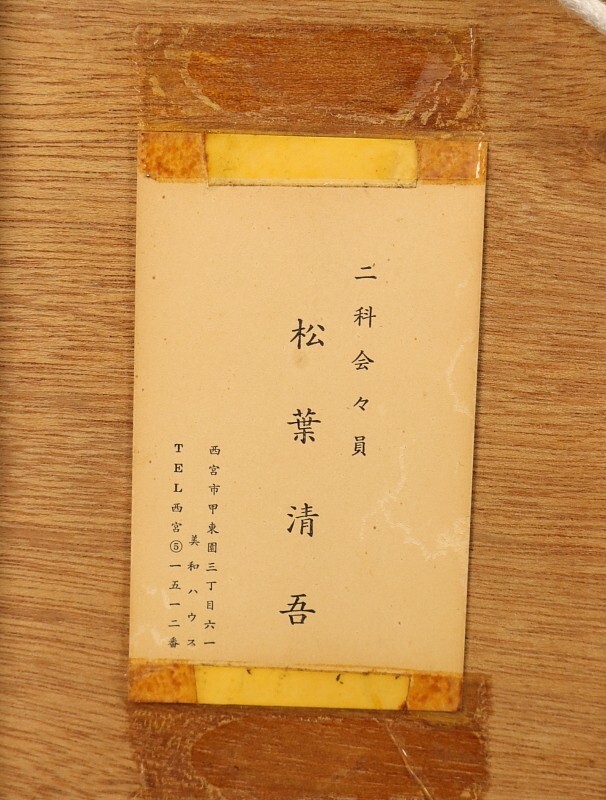 二科会々員
松葉清吾
西宮市甲東園三丁目六一
美和ハウス
TEL西宮⑤一五一二番